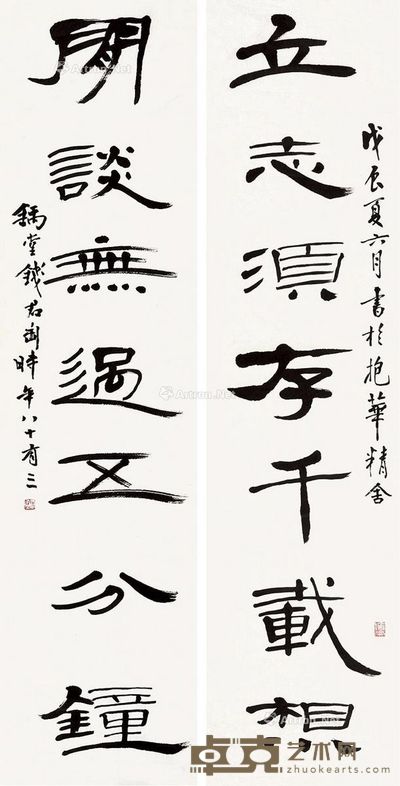 戊辰夏六月書於抱華精舍
立志須存千載想
閑談無過五分鐘
豫堂錢君匋時年八十有三
Artron.Net
卓克艺术网
www.zhuokearts.com